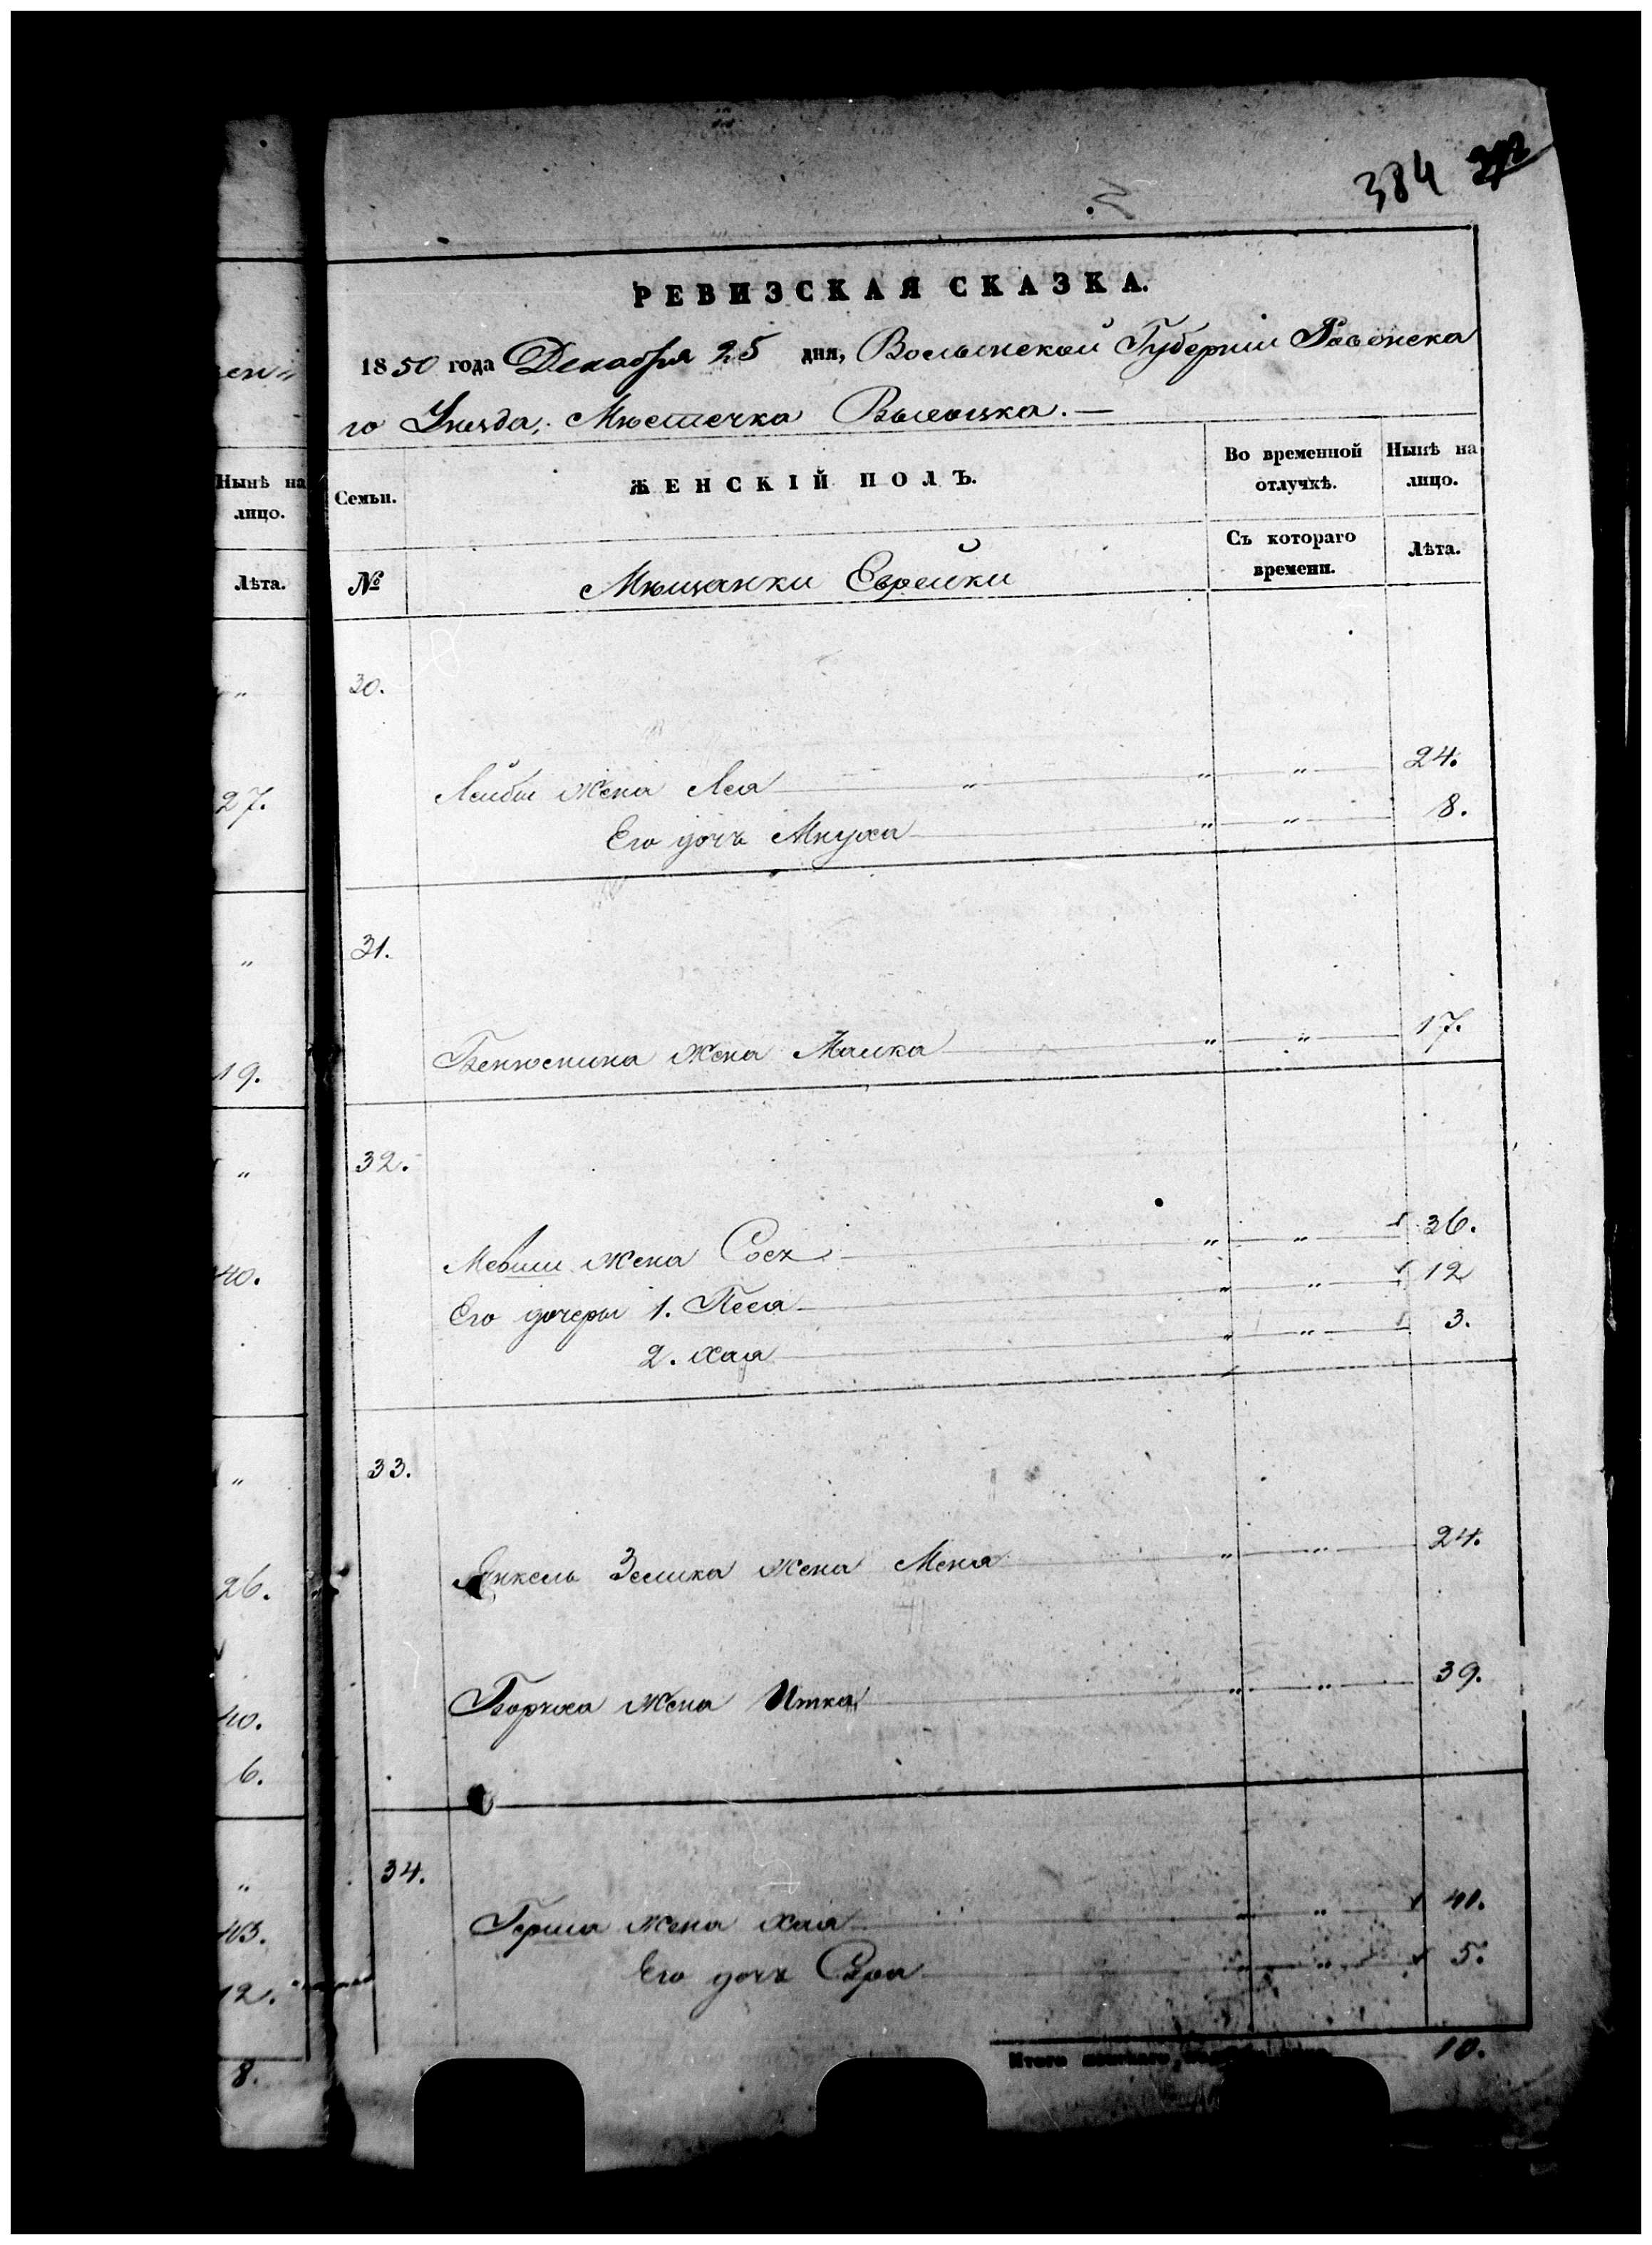 384 272
РЕВИЗСКАЯ СКАЗКА.
1850 года Декабря 25 дня, Волынской Губернии Ровенска
го Уѣзда, Мѣстечка Высоцка. —
Семьи. ЖЕНСКІЙ ПОЛЪ. Во временной отлучкѣ. Нынѣ на лицо.
№ Мѣщанки Еврейки Съ котораго времени. Лѣта.
30.
Лейбы жена Лея " " " 24.
Его дочь Мнуха " " 8.
31.
жена Малка " " 17.
32.
жена " " 36.
Его дочеры 1. Песя " " 12
2. Хая " " 3.
33.
Янкель Зелика жена Меня " " 24.
Боруха жена Итка " " 39.
34.
Герша жена Хая " " 41.
Его дочь Сура " " 5.
Итого 10.
Нынѣ на
лицо.
Лѣта.
"
27.
"
19.
"
40.
"
26.
40.
6.
"
43.
12.
8.